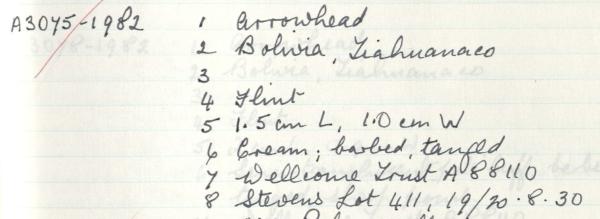 A3075-1982 1 Arrowhead
2 Bolivia, Tiahuanaco
3
4 Flint
5 1.5cm L, 1.0cm W
6 Cream; barbed, tanged
7 Wellcome Trust A 88110
8 Stevens Lot 411, 19/20.8.30